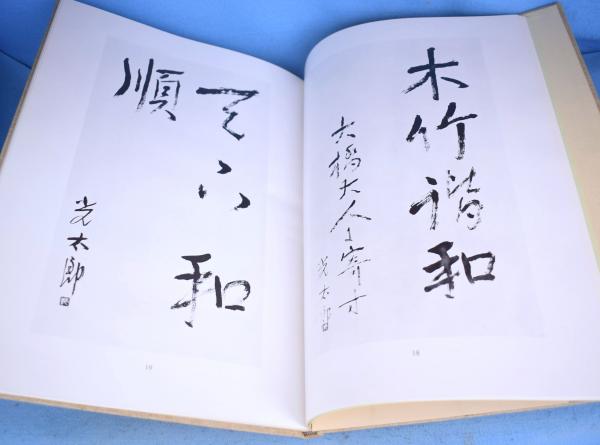 木竹諧和
大橋大人に寄す
光太郎
18
天下和
順
光太郎
19